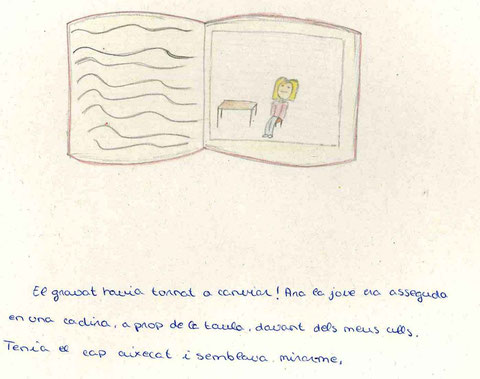 El gravat havia tornat a canviar! Ara la jove era asseguda
en una cadira, a prop de la taula, davant dels meus ulls.
Tenia el cap aixecat i semblava mirarme.